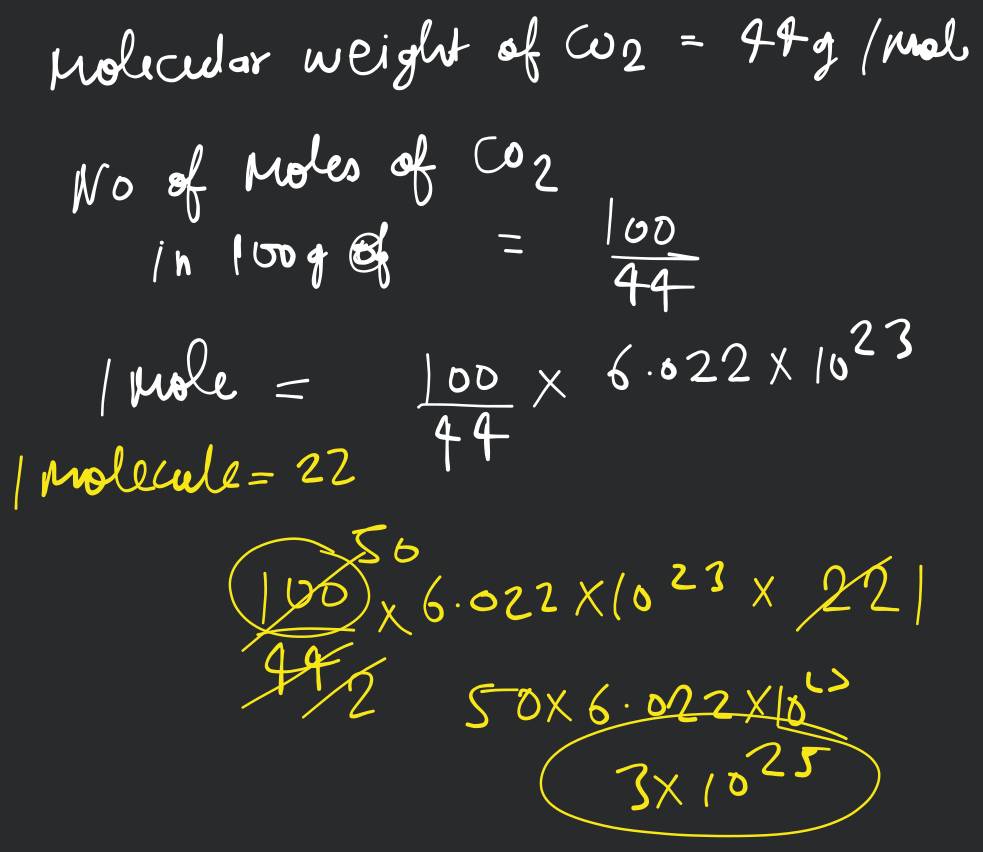 Molecular weight of CO2 = 44g/mol
No of Moles of CO2
in 100g of = 100/44
1 mole = 100/44 × 6.022 × 10^23
1 molecule = 22
50
100/44 × 6.022 × 10^23 × 22 1
2
50 × 6.022 × 10
3 × 10^25